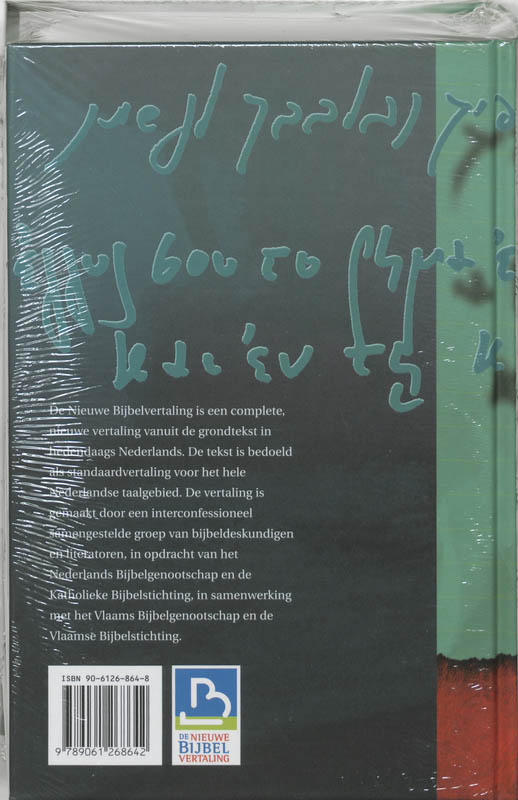 פיך ובלבבך
σου το ῥῆμά
και ἐν τῇ κ
De Nieuwe Bijbelvertaling is een complete,
nieuwe vertaling vanuit de grondtekst in
hedendaags Nederlands. De tekst is bedoeld
als standaardvertaling voor het hele
Nederlandse taalgebied. De vertaling is
gemaakt door een interconfessioneel
samengestelde groep van bijbeldeskundigen
en literatoren, in opdracht van het
Nederlands Bijbelgenootschap en de
Katholieke Bijbelstichting, in samenwerking
met het Vlaams Bijbelgenootschap en de
Vlaamse Bijbelstichting.
ISBN 90-6126-864-8
9 789061 268642
DE NIEUWE
BIJBEL
VERTALING